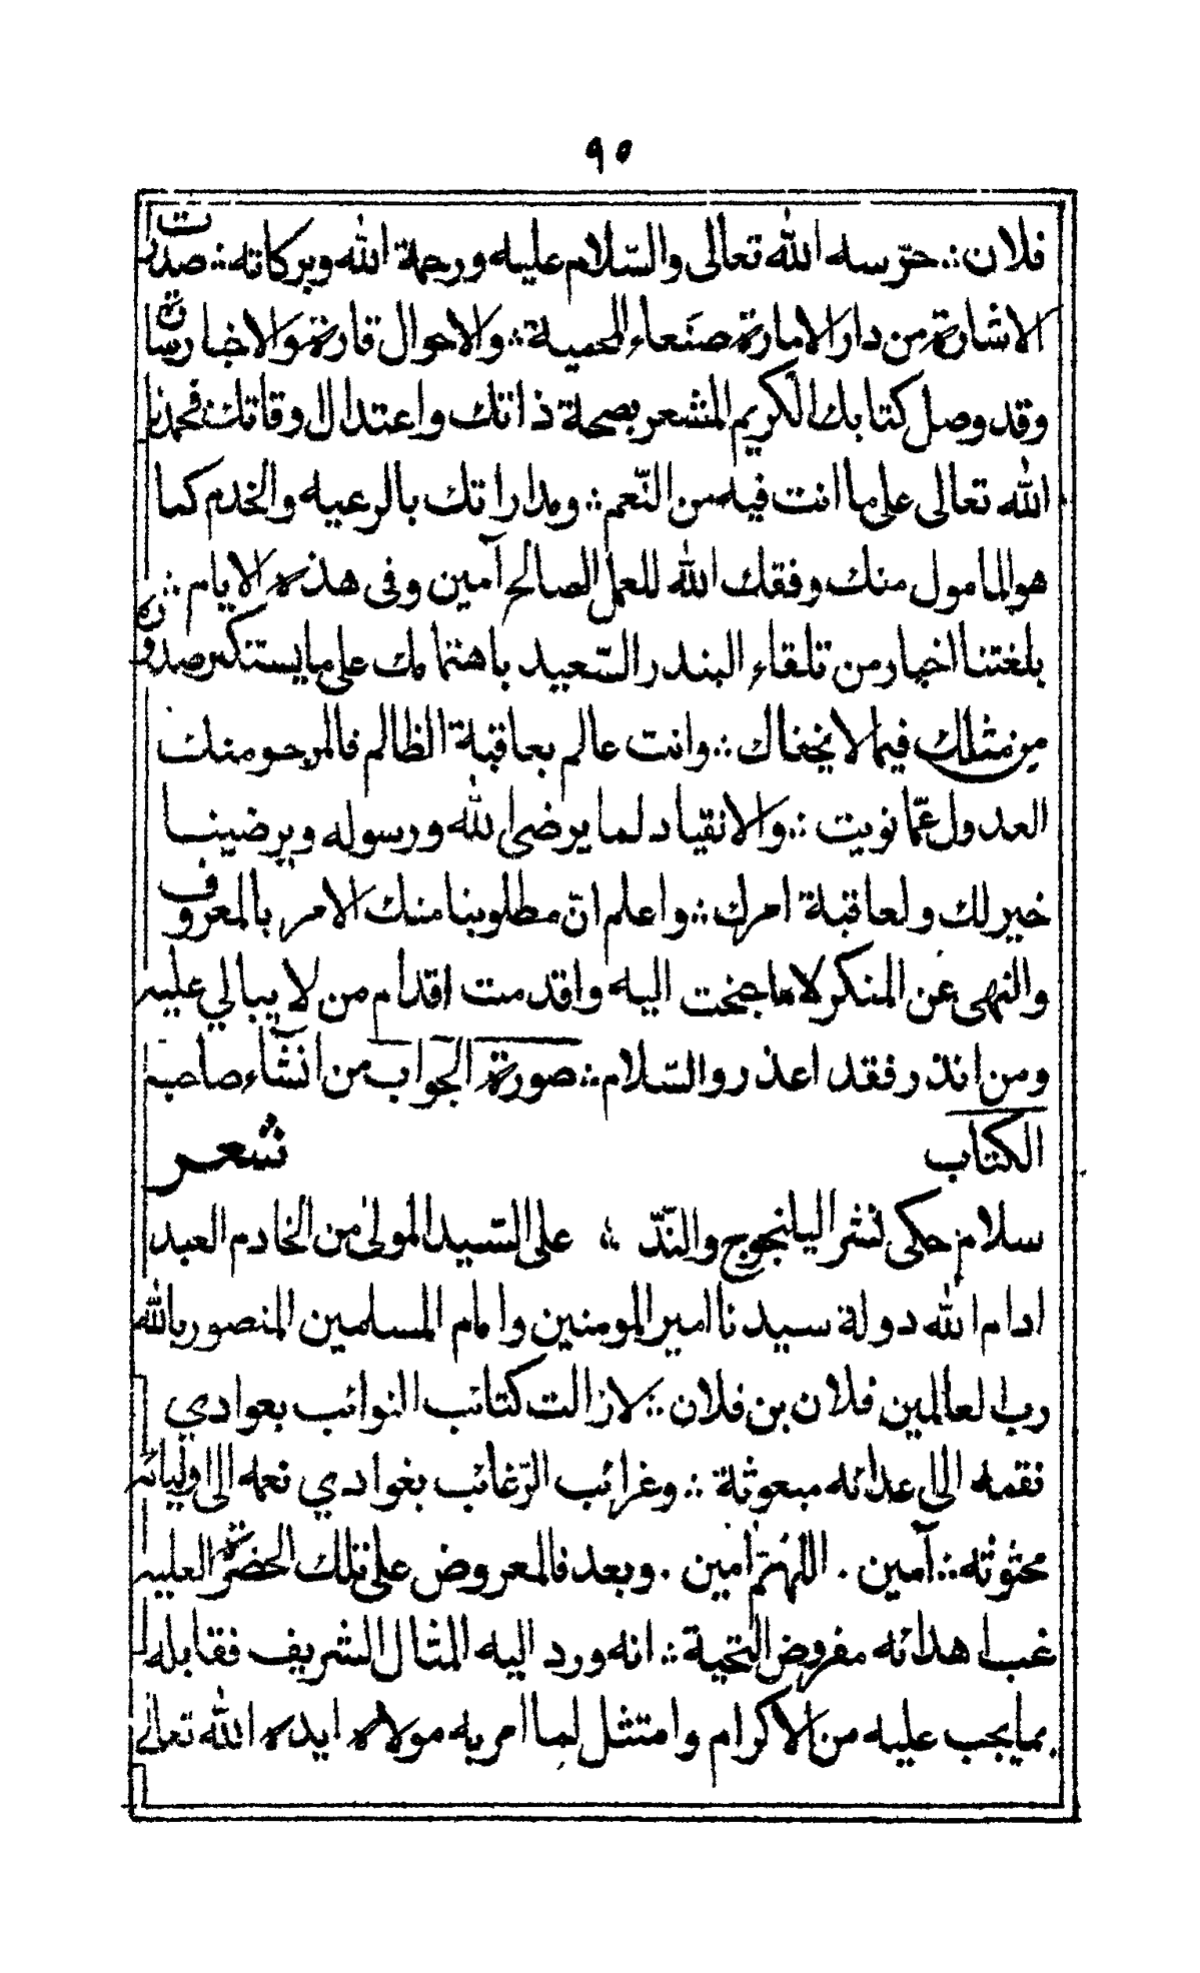 ٩٥
فلان ؞ حرّسه الله تعالى والسّلام عليه ورحمة الله وبركاته ؞ صدرت
الاشارة من دار الامارة صنعاء المحمية ؞ والاحوال قارة والاخبار سارة
وقد وصل كتابك الكريم المشعر بصحة ذاتك واعتدال اوقاتك فحمدنا
الله تعالى على ما انت فيه من النّعم ؞ ومداراتك بالرعيه والخدم كما
هو المامول منك وفقك الله للعمل الصالح آمين وفى هذه الايام ؞
بلغتنا اخبار من تلقاء البندر السّعيد باهتمامك على ما يستنكر صدوره
من مثلك فيما لا يخفاك ؞ وانت عالم بعاقبة الظالم فالمرجو منك
العدول عمّا نويت ؞ والانقياد لما يرضى الله ورسوله ويرضينا
خير لك ولعاقبة امرك ؞ واعلم انّ مطلوبنا منك الامر بالمعروف
والنهى عن المنكر لا ما جنحت اليه واقدمت اقدام من لا يبالي عليه
ومن انذر فقد اعذر والسّلام ؞ صورة الجواب من انشآء صاحب
الكتاب شعر
سلام حكى نشر اليلنجوج والنّدّ ؞ على السّيد المولىٰ من الخادم العبد
ادام الله دولة سيدنا امير المومنين وامام المسلمين المنصور بالله
رب العالمين فلان بن فلان ؞ لا زالت كتائب النوائب بعوادي
نقمه الى اعدائه مبعوثة ؞ وغرائب الرّغائب بغوادي نعمه الى اوليائه
محثوثه ؞ آمين . اللهمّ آمين . وبعد فالمعروض على تلك الحضرة العليه
غب اهدائه مفروض التحية ؞ انه ورد اليه المثال الشريف فقابله
بما يجب عليه من الاكرام وامتثل لما امر به مولاه ايده الله تعالى